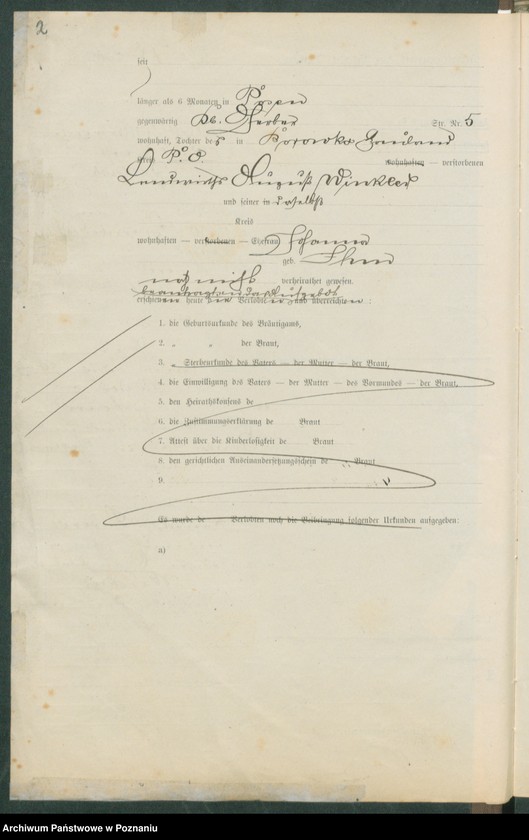 2
seit
länger als 6 Monaten in Posen
gegenwärtig Str. Nr. 5
wohnhaft, Tochter des in Hauland
Kreis P. O. wohnhaften — verstorbenen
Landwirths August Winkler
und seiner in daselbst
Kreis
wohnhaften — verstorbenen — Ehefrau Johanna
geb.
noch nicht verheirathet gewesen.
beantragen das Aufgebot
erschienen heute die Verlobten und überreichten :
1. die Geburtsurkunde des Bräutigams,
2. „ „ der Braut,
3. „ Sterbeurkunde des Vaters — der Mutter — der Braut,
4. die Einwilligung des Vaters — der Mutter — des Vormundes — der Braut,
5. den Heirathskonsens de
6. die Zustimmungserklärung de Braut
7. Attest über die Kinderlosigkeit de Braut
8. den gerichtlichen Auseinandersetzungsschein de Braut
9.
Es wurde de Verlobten noch die Beibringung folgender Urkunden aufgegeben:
a)
Archiwum Państwowe w Poznaniu